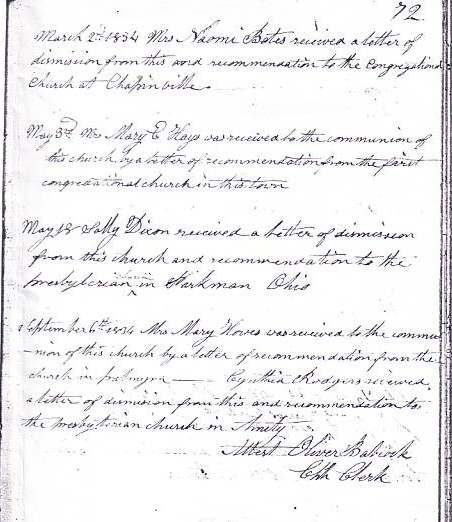 72
March 2d 1834 Mrs Naomi Bates reicived a letter of
dismission from this and recommendation to the Congregational
Church at Chapinville
May 3rd Mrs Mary E Hays was recieved to the communion of
this church by a letter of recommendation from the first
congregational church in this town
May 18 Sally Dixon reicived a letter of dismission
from this church and recommendation to the
presbyterian church in Parkman Ohio
September 6th 1834 Mrs Mary Howes was recieved to the commu-
-nion of this church by a letter of recommendation from the
church in palmyra — Cynthia Rodgers recieved
a letter of dismission from this and recommendation to
the presbyterian church in Amity
Attest Oliver Babcock
Chh Clerk